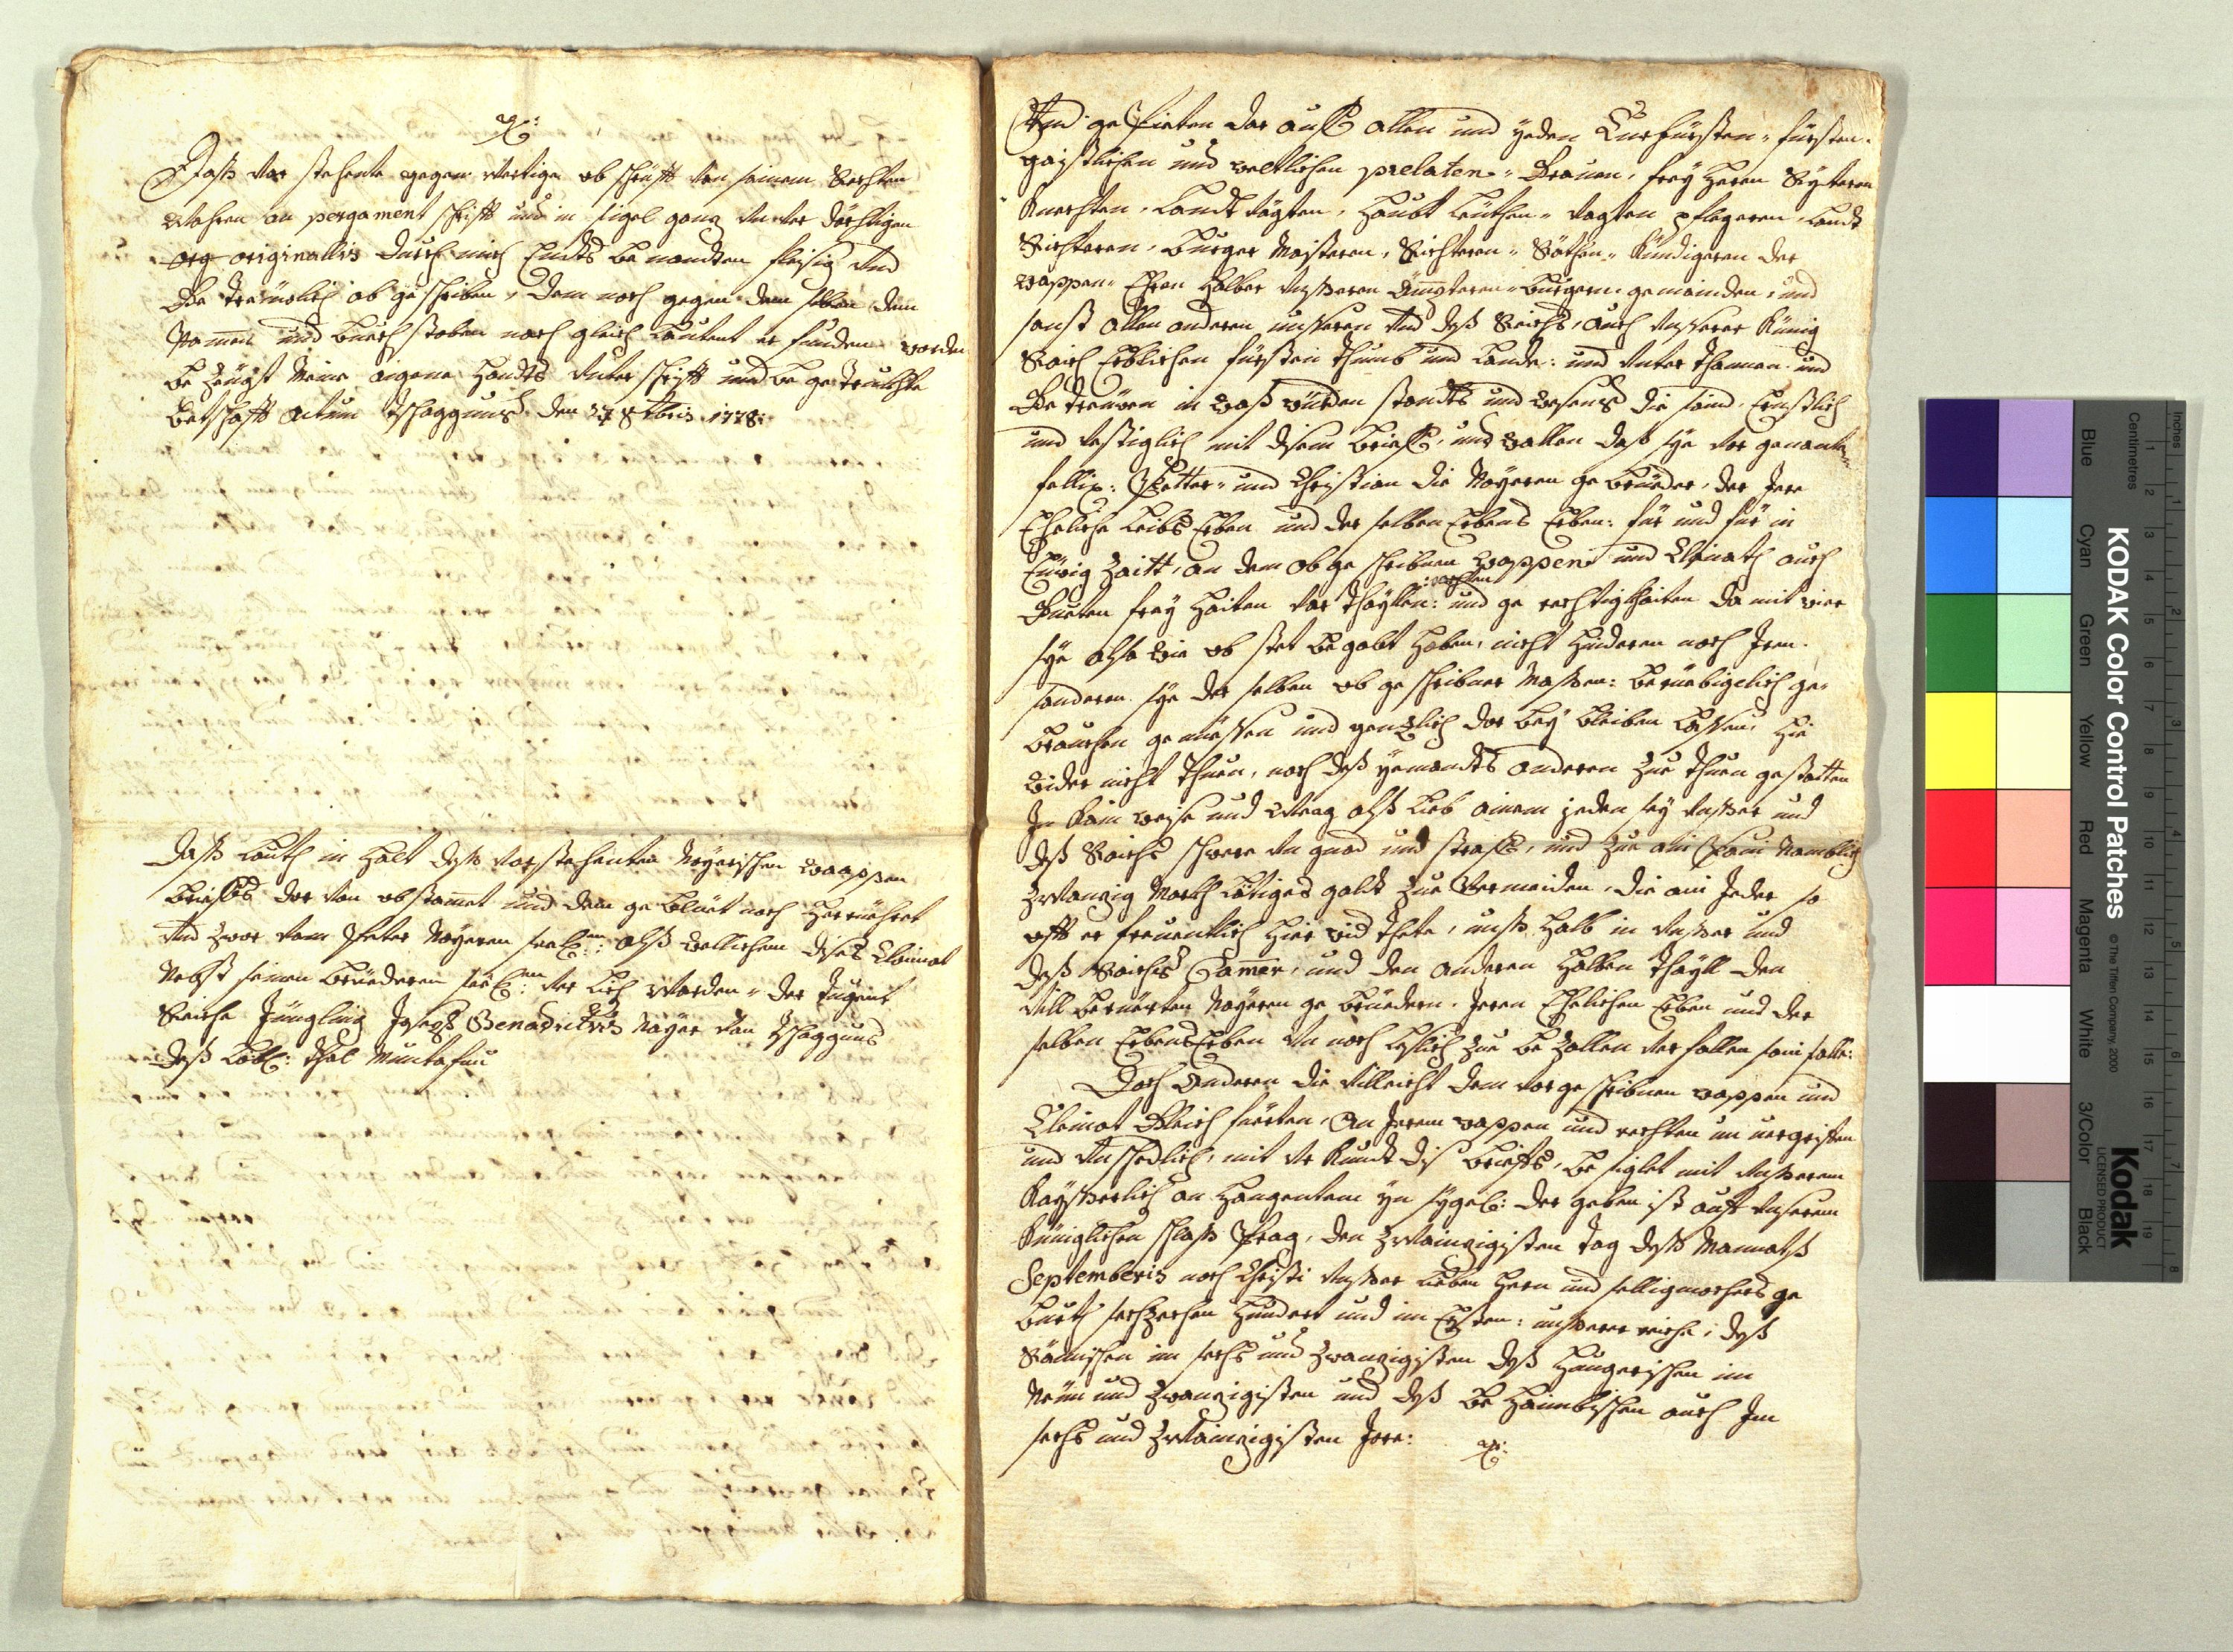 Daß vor stehente gegen wertige ab schrifft von seinem Rechten
wahren an pergament schrifft und in sigel ganz vnver dächtigen
org originallis durch mich Endts be nandten fleisig vnd
Ge treuwlich ab ge schriben, dem noch gegen dem selben dem
Namen und buech staben nach gleich lautent er funden worden
be zeugt Meine aigene Handts vnter schrifft und be ge truckhte
Betschafft Actum Tschagguns den 27 8bris 1778:
Daß lauth in halt deß vorstehenten Mayerischen Waappen
brieffs der von abstamet und dem ge bluet nach herrüehret
vnd zwar vom Peter Mayeren seel: alß wellichem dises Cleinot
Nebst seinen brüederen seel: ver lich worden, der tugent
Reiche Jüngling Joseph Benedictus Mayer von Tschagguns
deß Lobl: thal Muntafun
Vnd ge bieten dar auff allen und yeden Curfürsten, fürsten,
gaistlichen und weltlichen prelaten, Grauen, frey Heren Ryteren
Knechten, Landt vögten, Haubt leüthen, vogten pflegeren, Landt
Richteren, burger Maisteren, Richteren, Räthen, Kündigeren der
wappen, Ehren halber vnsseren Ämpteren, burgeren gemainden, und
sonst allen anderen unsseren vnd deß Reichs, auch vnsserer Künig
Reich Erblichen fürsten thumb und Lande: und vnter thannen und
Ge treüwen in waß würden standts und wesens die seind, Ernstlich
und vestiglich mit disem brieff, und wellen daß sye vor genante
fellix: Petter, und Christian die Mayeren ge brüeder, der Jere
Eheliche leibs Erben und der selben Erbens Erben: für und für in
Ewig Zeitt, an dem ob ge schribnen wappen und Cleinath auch
:rechten
Gueten frey heiten vor theyllen: und ge rechtigkheiten da mit wier
sye also wie ob stet begabt haben, nicht hinderen noch Jren.
sonderen sye der selben ob ge schribner Massen: berüebigelich ge-
brauchen geniessen und gentzlich dar bey bleiben lassen, hie
wider nicht thuen, noch deß yemandts anderen zue thuen gestatten
Jn kein weise und weeg alß lieb einem jeden sey vnsser und
deß Reichs schwere vn gnad und straff, und zue ein peen Namblich
zwanzig March lötiges golt zue vermeiden, die ein Jeder so
offt er freuentlich hier wid thete, unß halb in vnsser und
deß Reichs Camer, und den anderen halben theyll den
vill berüerten Mayeren ge brüedern, Jeren Ehelichen Erben und der
selben Erbens Erben vn noch leslich zue be zallen ver fallen sein solle:
Doch anderen die villeicht dem vorge schribnen wappen und
Cleinot gleich fuerten, an Jerem wappen und rechten un uergriffen
und vn schedlich, mit vr kundt dis brieffs, be siglet mit vnsserem
Kaysserlich an hangentem yn sygel: der geben ist auff vnserem
Küniglichen schloß Prag, den zwainzigisten tag deß Mannaths
Septemberis nach Christi vnsser lieben Heren und selligmachers ge
burth sechzechen hundert und im Ersten: unsserer reiche, deß
Römischen im sechs und zwanzigisten deß Hungerischen im
Neün und zwanzigisten und deß be haimbischen auch Jm
sechs und zwainzigisten Jare: